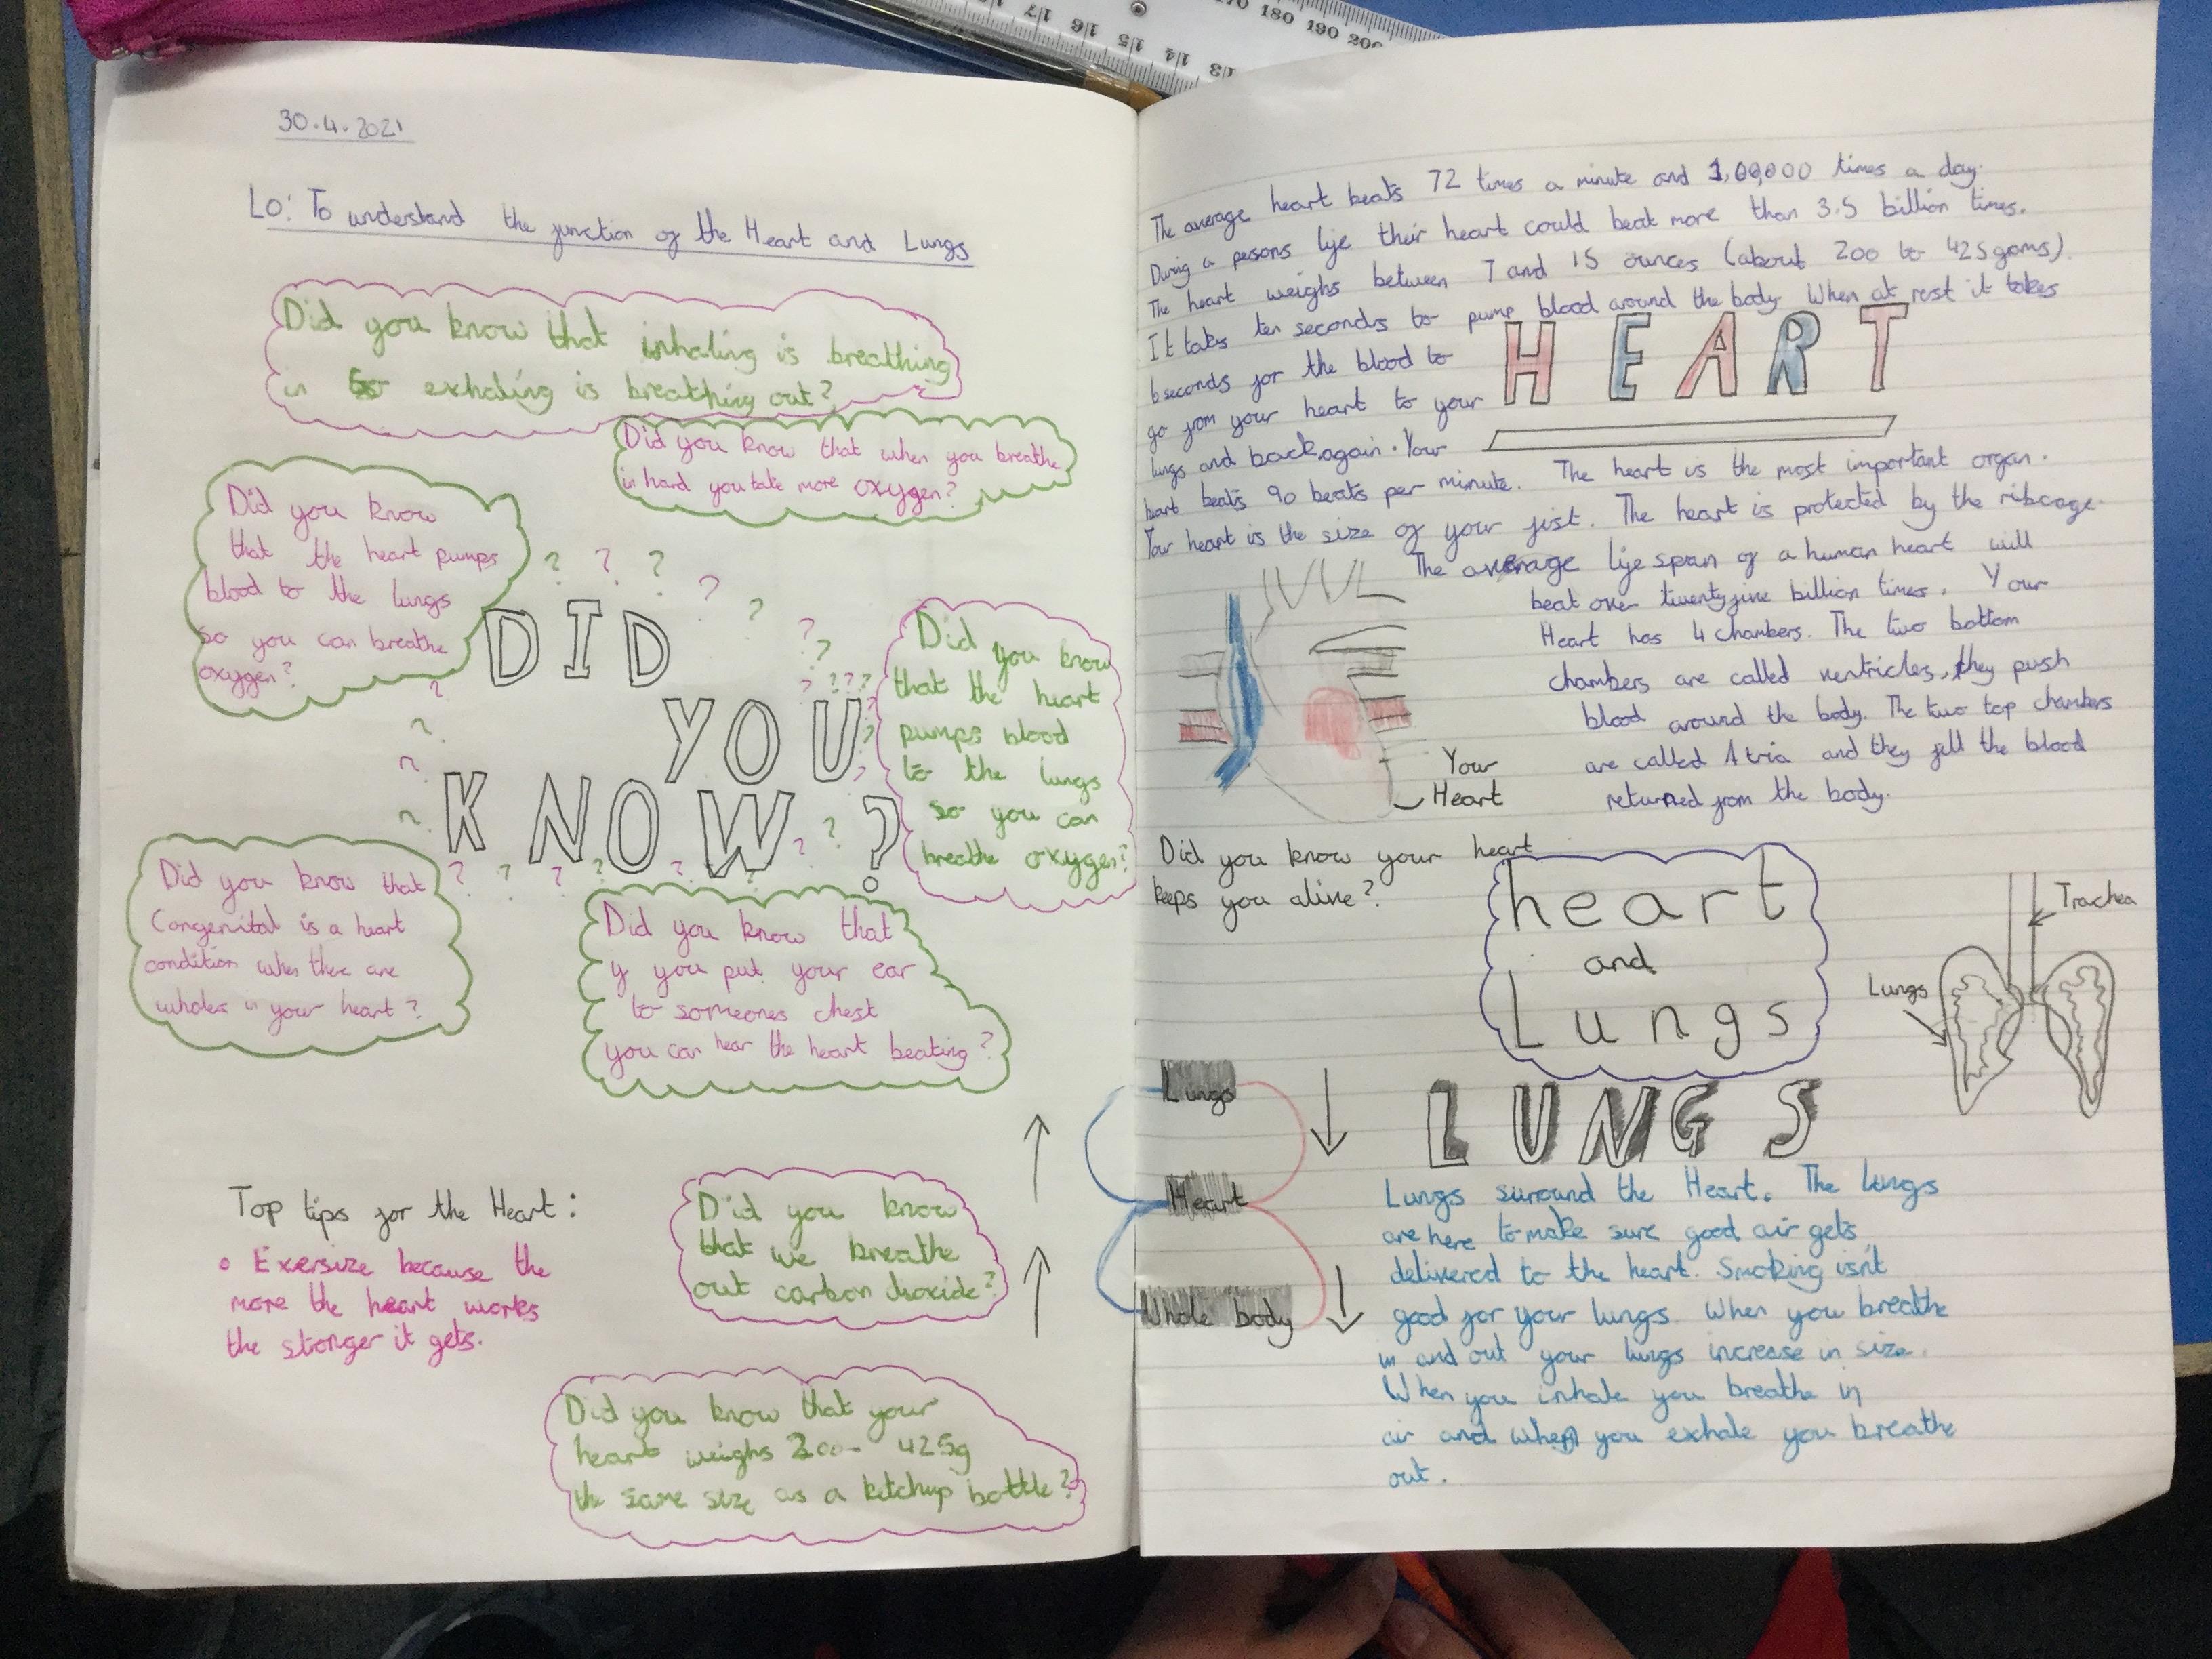 30.4.2021
Lo: To understand the function of the Heart and Lungs
Did you know that inhaling is breathing
in so exhaling is breathing out?
Did you know that when you breathe
in hard you take more oxygen?
Did you know
that the heart pumps
blood to the lungs
so you can breathe
oxygen?
DID
YOU
KNOW?
Did
you know
that the heart
pumps blood
to the lungs
so you can
breathe oxygen?
Did you know that
Congenital is a heart
condition when there are
wholes in your heart?
Did you know that
if you put your ear
to someones chest
you can hear the heart beating?
Top tips for the Heart:
Exersize because the
more the heart works
the stronger it gets.
Did you know
that we breathe
out carbon dioxide?
Did you know that your
heart weighs 200- 425g
the same size as a ketchup bottle?
The average heart beats 72 times a minute and 1,00,000 times a day.
During a persons life their heart could beat more than 3.5 billion times.
The heart weighs between 7 and 15 ounces (about 200 to 425 grams).
It takes ten seconds to pump blood around the body. When at rest it takes
6 seconds for the blood to
go from your heart to your
lungs and back again. Your
heart beats 90 beats per minute. The heart is the most important organ.
Your heart is the size of your fist. The heart is protected by the ribcage.
HEART
The average life span of a human heart will
beat over twentyfive billion times. Your
Heart has 4 chambers. The two bottom
chambers are called ventricles, they push
blood around the body. The two top chambers
are called Atria and they fill the blood
returned from the body.
Your
Heart
Did you know your heart
keeps you alive?
heart
and
Lungs
Trachea
Lungs
Lungs
Heart
Whole body
LUNGS
Lungs surround the Heart. The lungs
are here to make sure good air gets
delivered to the heart. Smoking isn't
good for your lungs. When you breathe
in and out your lungs increase in size.
When you inhale you breathe in
air and when you exhale you breathe
out.
170 180 190 200
17 16 15 14 13